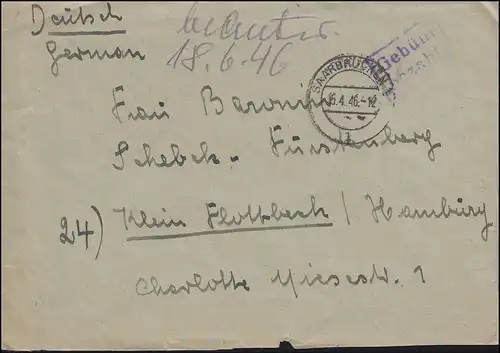 Deutsch
German
beantw.
18.6.46
Gebühr
bezahlt
SAARBRÜCKEN
16.4.46.-12
Frau Baronin
Schebek-Fürstenberg
24) Klein Flottbeck / Hamburg
Charlotte Niesestr. 1